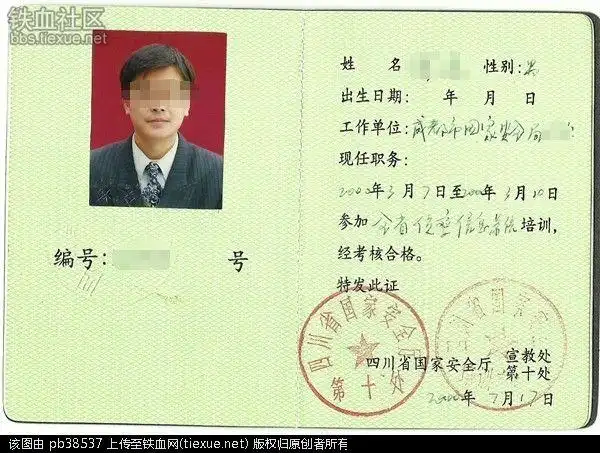 铁血社区
bbs.tiexue.net
编号： 号
姓 名 性别：男
出生日期： 年 月 日
工作单位：成都市国家安全局
现任职务：
2000年3月7日至2000年3月10日
参加 全省 培训，
经考核合格。
特发此证
四川省国家安全厅 宣教处
第十处
2000年7月17日
四川省国家安全厅
第十处
该图由 pb38537 上传至铁血网(tiexue.net) 版权归原创者所有